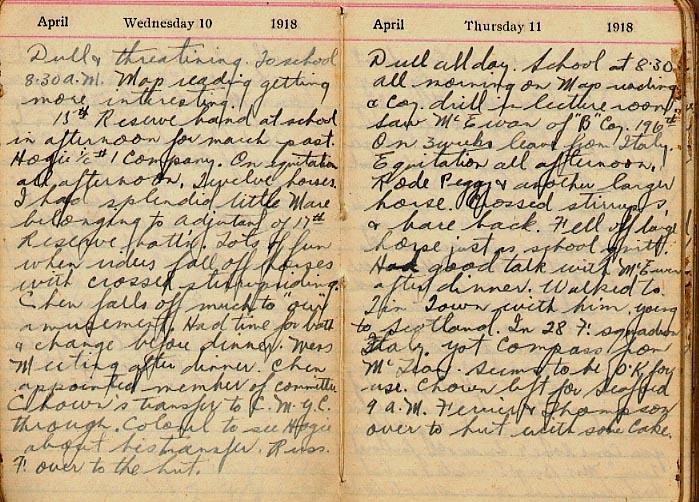 April Wednesday 10 1918
Dull & threatining. To school
8:30 A.M. Map reading getting
more interesting.
15th Reserve band at school
in afternoon for march past.
Hogie i/c #1 Company. On equitation
all afternoon. Twelve horses.
I had splendid little Mare
belonging to Adjutant of 17th
Reserve batt'n. Lots of fun
when riders fall off horses
with crossed stirrup riding.
Chen falls off much to "our"
amusement. Had time for bath
& change before dinner. Mess
Meeting after dinner. Chen
appointed member of committee
Chown's transfer to C.M.G.C.
through. Colonel to see Hogie
about his transfer. Russ.
F. over to the hut.
April Thursday 11 1918
Dull all day. School at 8:30
all morning on Map reading
& Coy. drill in lecture room.
Saw McEwan of "B" Coy. 196th
On 3 weeks leave from Italy.
Equitation all afternoon.
Rode Peggy & another larger
horse. Crossed stirrups
& bare back. Fell off large
horse just as school quit.
Had good talk with McEwan
after dinner. Walked to
Town with him. going
to Scotland. In 28 F. squadron
Italy. Got Compass from
Seems to be O.K. for
use. Chown left for Seaford
9 A.M. Ferrier & Thompson
over to hut with some Cake.